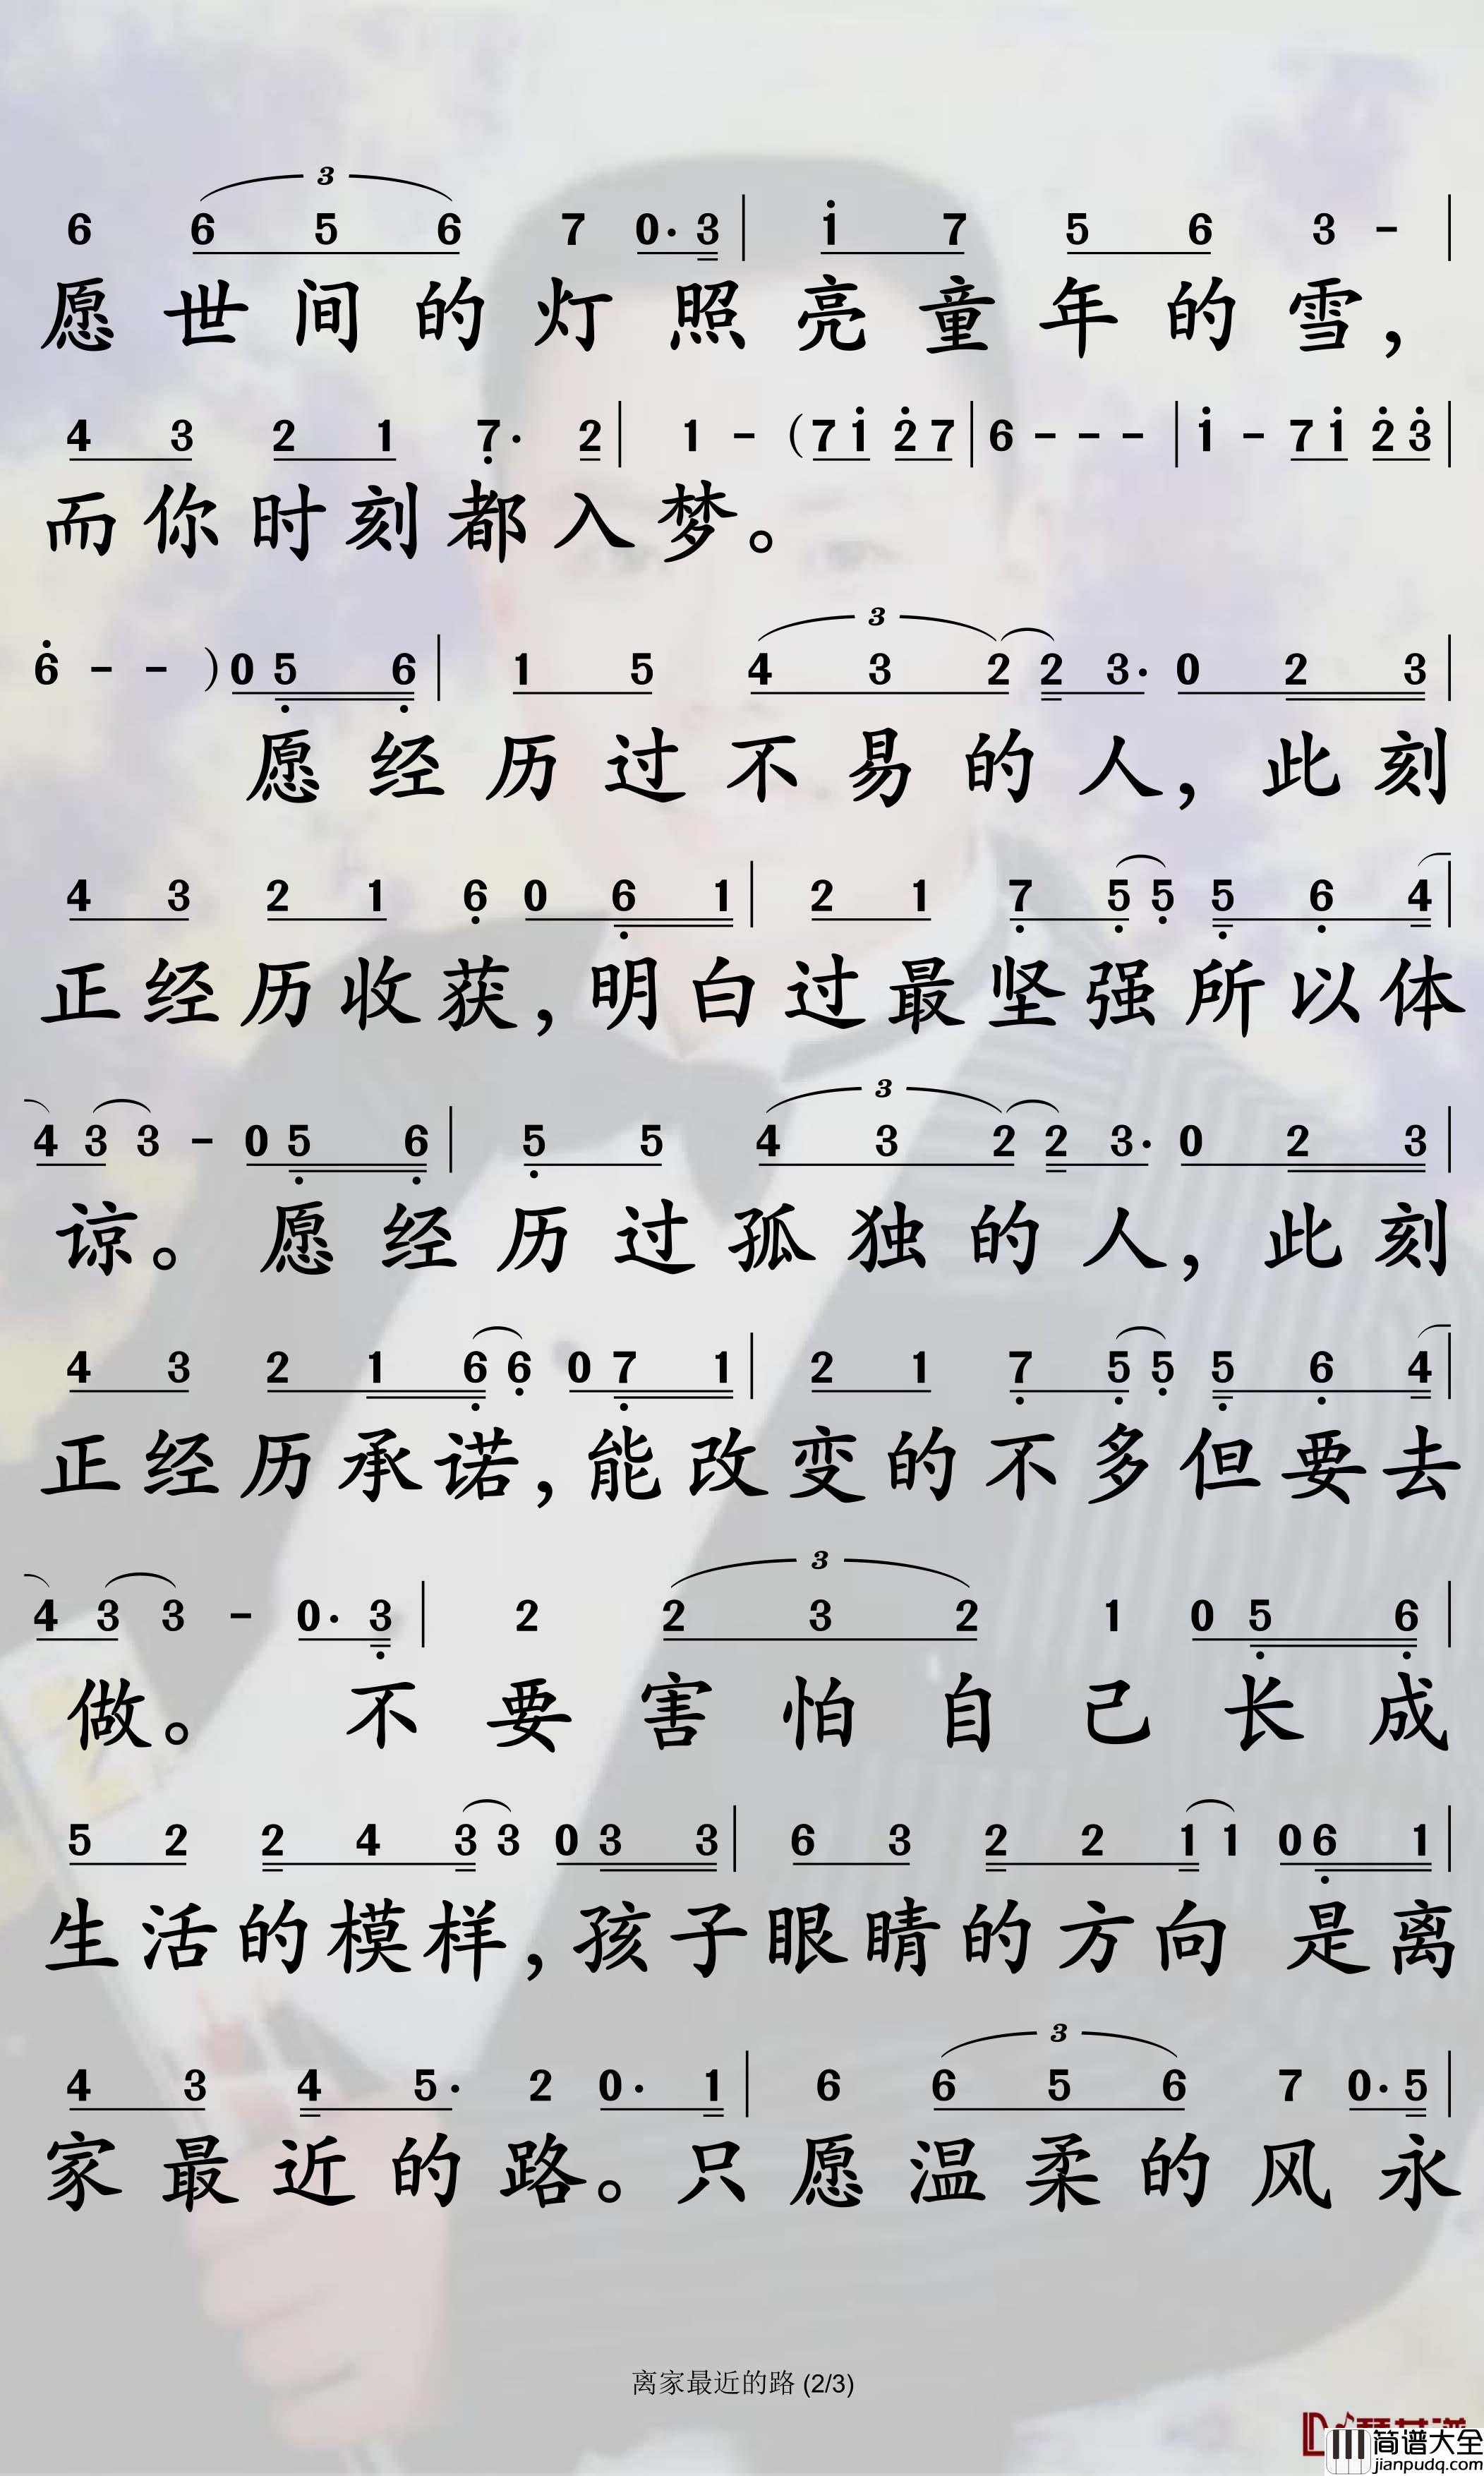 3
6 6 5 6 7 0· 3 | i 7 5 6 3 - |
愿世间的灯照亮童年的雪，
4 3 2 1 7· 2 | 1 - (7 i 2 7 | 6 - - - | i - 7 i 2 3 |
而你时刻都入梦。
3
6 - - ) 0 5 6 | 1 5 4 3 2 2 3· 0 2 3 |
愿经历过不易的人，此刻
4 3 2 1 6 0 6 1 | 2 1 7 5 5 5 6 4 |
正经历收获，明白过最坚强所以体
3
4 3 3 - 0 5 6 | 5 5 4 3 2 2 3· 0 2 3 |
谅。愿经历过孤独的人，此刻
4 3 2 1 6 6 0 7 1 | 2 1 7 5 5 5 6 4 |
正经历承诺，能改变的不多但要去
3
4 3 3 - 0· 3 | 2 2 3 2 1 0 5 6 |
做。不要害怕自己长成
5 2 2 4 3 3 0 3 3 | 6 3 2 2 1 1 0 6 1 |
生活的模样，孩子眼睛的方向 是离
3
4 3 4 5· 2 0· 1 | 6 6 5 6 7 0· 5 |
家最近的路。只愿温柔的风永
离家最近的路 (2/3)
简谱大全
jianpudq.com